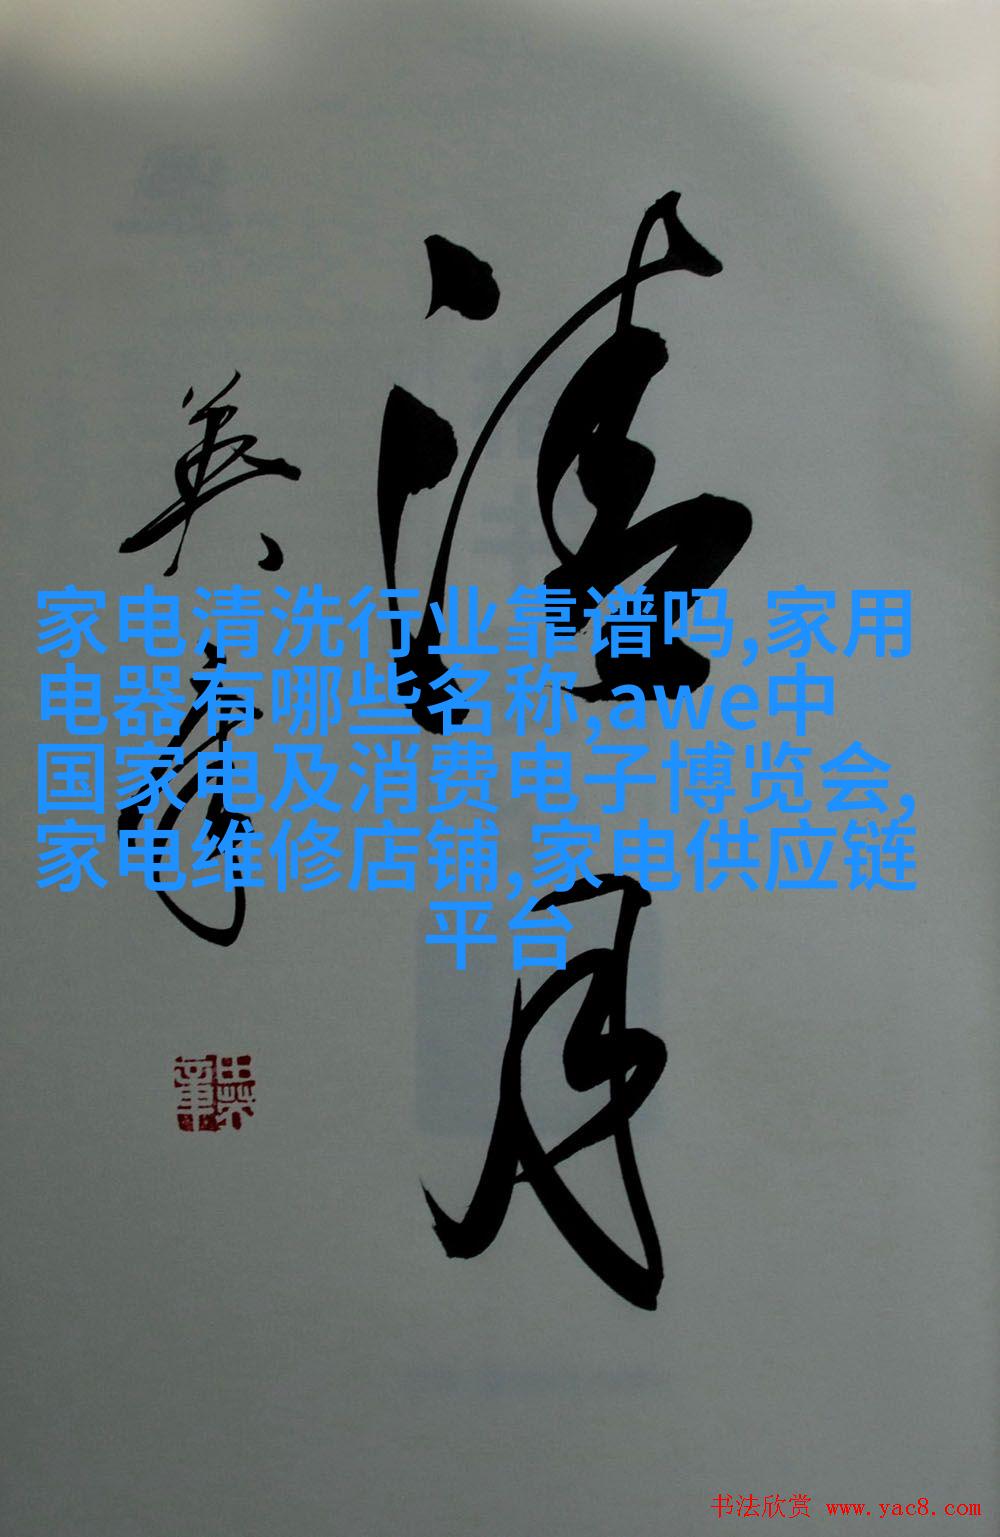 清月
英章
家电清洗行业靠谱吗,家用
电器有哪些名称,awe中
国家电及消费电子博览会,
家电维修店铺,家电供应链
平台
书法欣赏 www.yac8.com